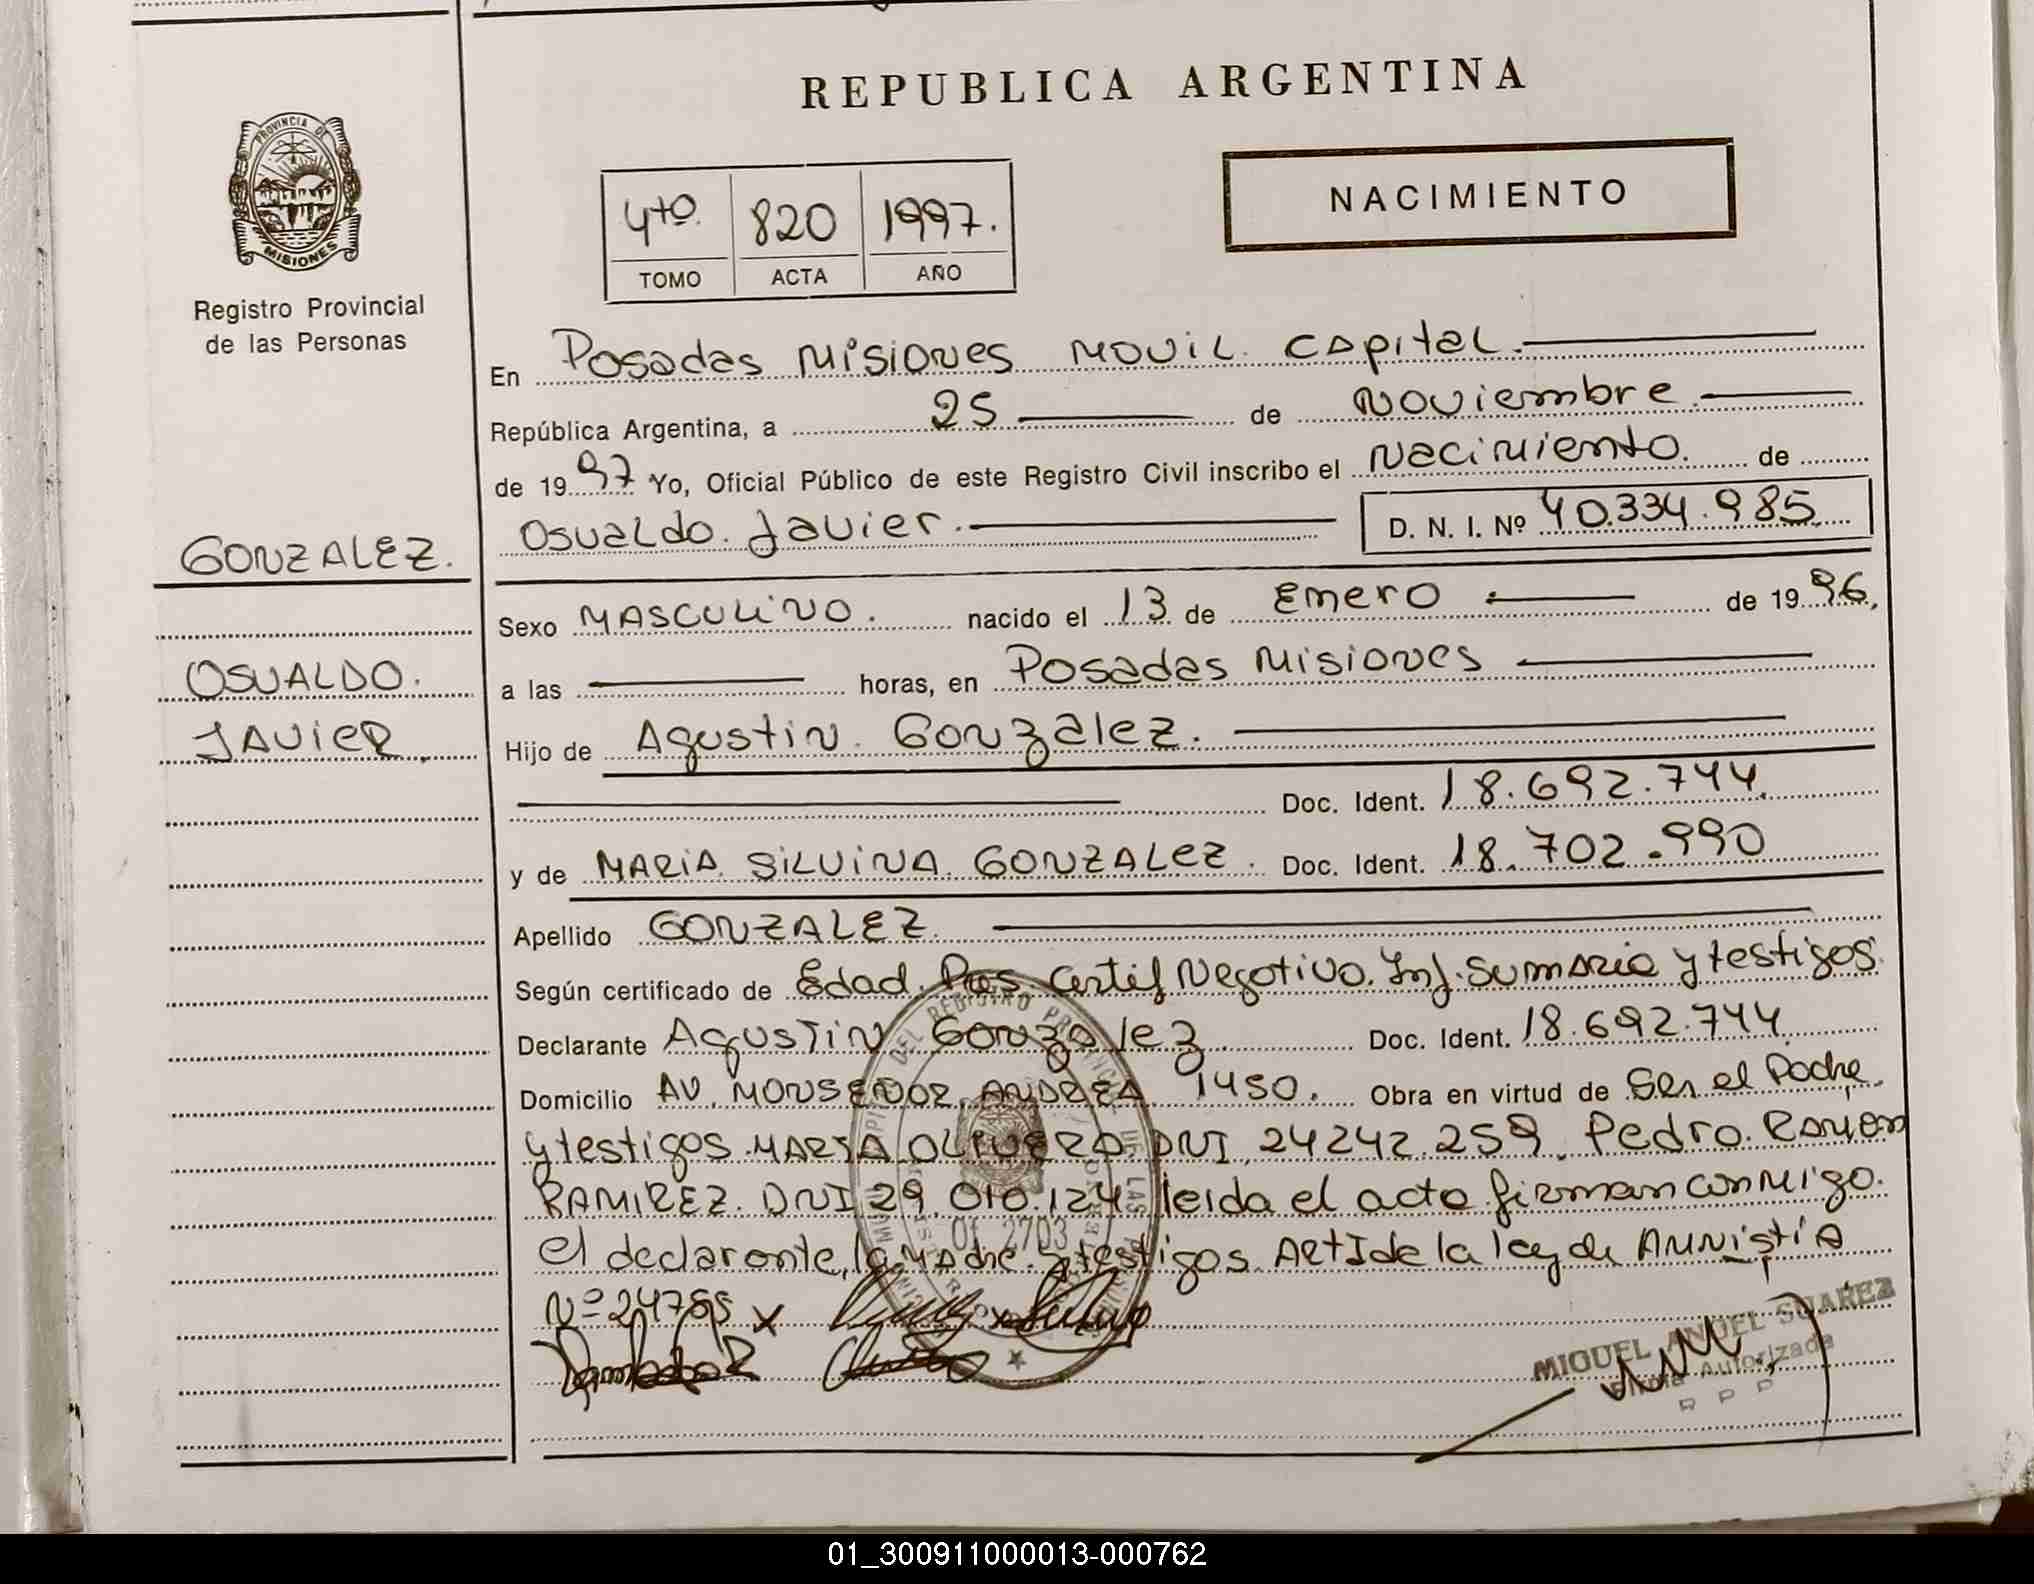 REPUBLICA ARGENTINA
PROVINCIA DE
MISIONES
Registro Provincial
de las Personas
NACIMIENTO
4to. 820 1997.
TOMO ACTA AÑO
En Posadas Misiones Movil Capital.
República Argentina, a 25 de Noviembre
de 1997 Yo, Oficial Público de este Registro Civil inscribo el Nacimiento. de
GONZALEZ.
Osvaldo. Javier. D. N. I. Nº 40.334.985
Sexo MASCULINO. nacido el 13 de Enero de 1996,
OSVALDO.
a las horas, en Posadas Misiones
JAVIER.
Hijo de Agustin Gonzalez.
Doc. Ident. 18.692.744.
y de MARIA SILVINA GONZALEZ. Doc. Ident. 18.702.990
Apellido GONZALEZ.
Según certificado de Edad. Pres. Certif Negativo. Inf. Sumaria y testigos.
Declarante Agustin Gonzalez Doc. Ident. 18.692.744
Domicilio AV. MONSEÑOR ANDREA 1450. Obra en virtud de Ser el Padre
y testigos. MARIA OLIVERA DNI 24242.259. Pedro. Ramon
RAMIREZ. DNI 29.010.124 leida el acta firman conmigo.
el declarante, la Madre y testigos. Art I de la ley de Amnistia
Nº 24755 x
MIGUEL ANGEL SUAREZ
Firma Autorizada
R P P
01_300911000013-000762